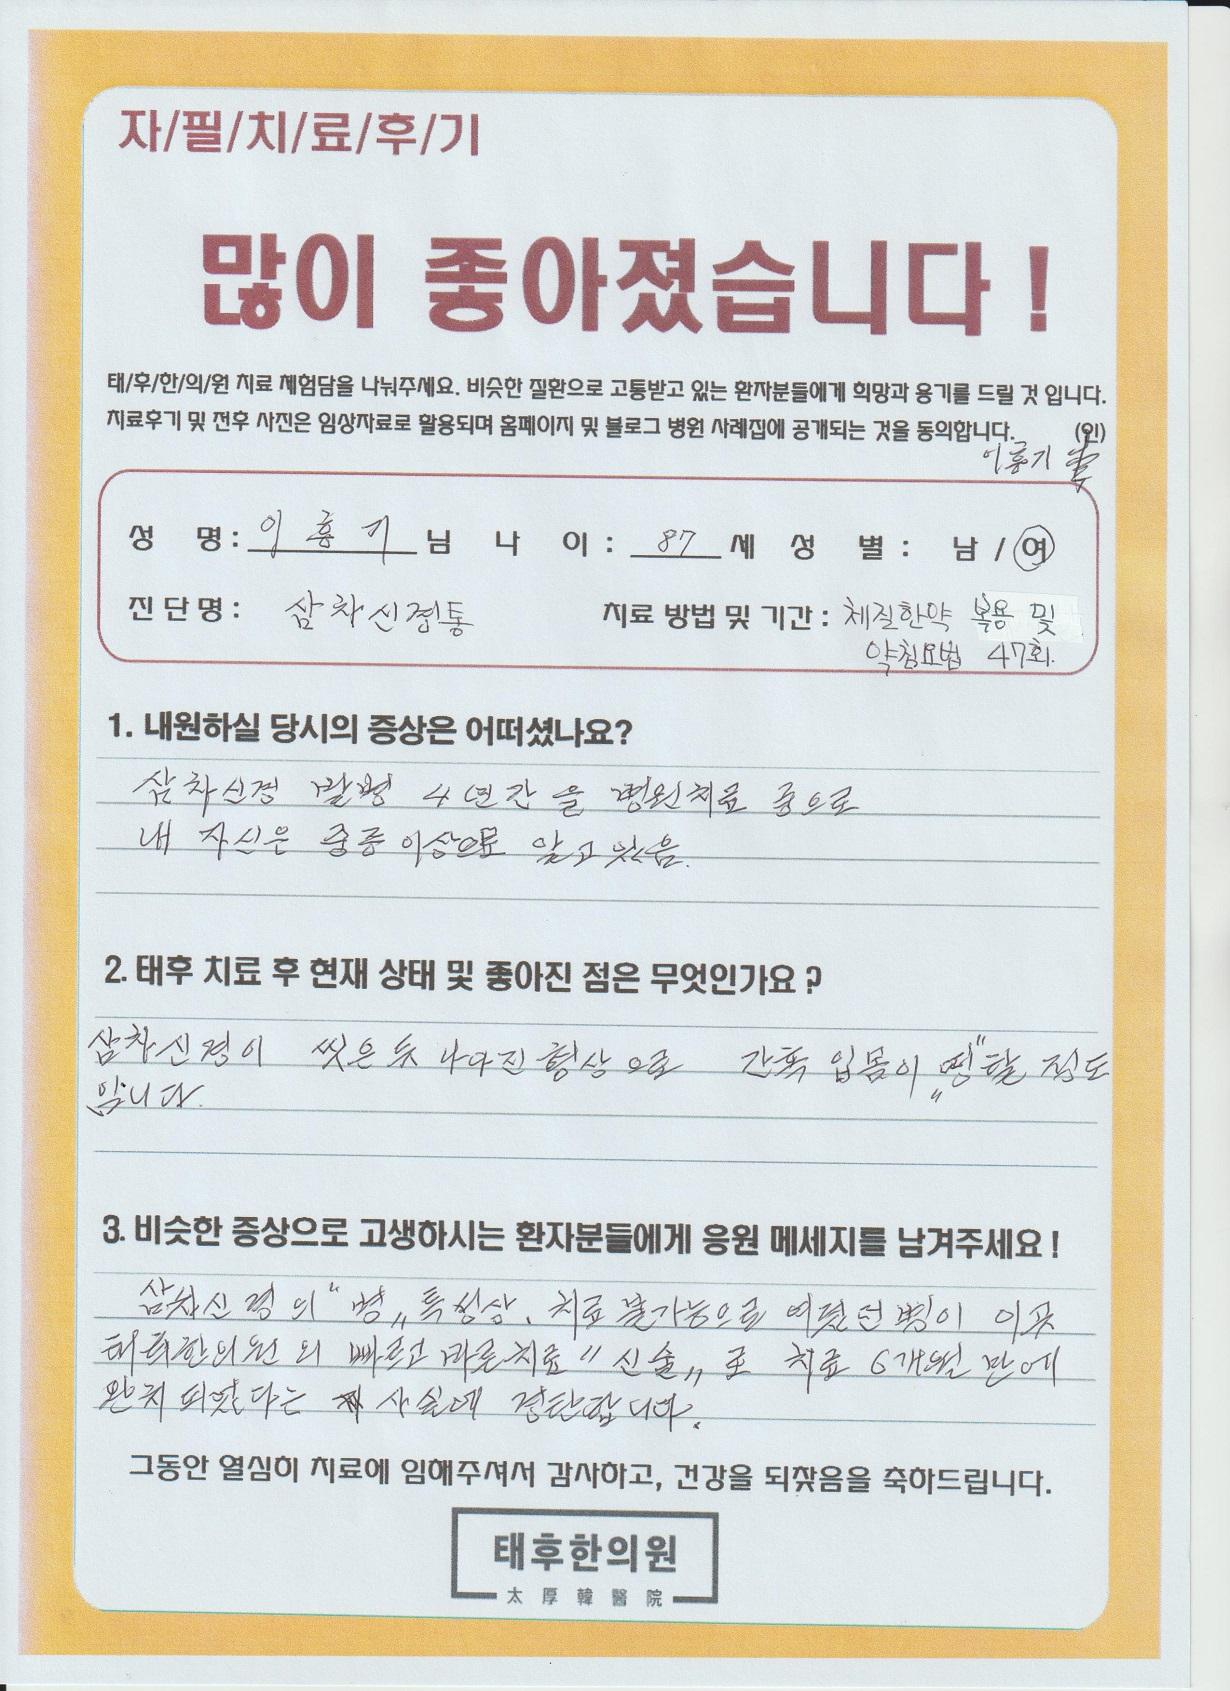 자/필/치/료/후/기
많이 좋아졌습니다 !
태/후/한/의/원 치료 체험담을 나눠주세요. 비슷한 질환으로 고통받고 있는 환자분들에게 희망과 용기를 드릴 것 입니다.
치료후기 및 전후 사진은 임상자료로 활용되며 홈페이지 및 블로그 병원 사례집에 공개되는 것을 동의합니다. (인)
이흥기
성 명 : 이 흥 기 님 나 이 : 87 세 성 별 : 남 / 여
진 단 명 : 삼차신경통 치료 방법 및 기간 : 체질한약 복용 및
약침요법 47회.
1. 내원하실 당시의 증상은 어떠셨나요?
삼차신경 발병 4년간을 병원치료 중으로
내 자신은 중증이상으로 알고 있음.
2. 태후 치료 후 현재 상태 및 좋아진 점은 무엇인가요 ?
삼차신경이 씻은 듯 나아진 형상으로 간혹 입몸이 "띵"할 정도
입니다.
3. 비슷한 증상으로 고생하시는 환자분들에게 응원 메세지를 남겨주세요 !
삼차신경의 "병" 특성상. 치료 불가능으로 여겼던 병이 이곳
태후한의원의 빠르고 바른치료 "신술" 로 치료 6개월 만에
완치 되었다는 사실에 경탄합니다.
그동안 열심히 치료에 임해주셔서 감사하고, 건강을 되찾음을 축하드립니다.
태후한의원
太 厚 韓 醫 院